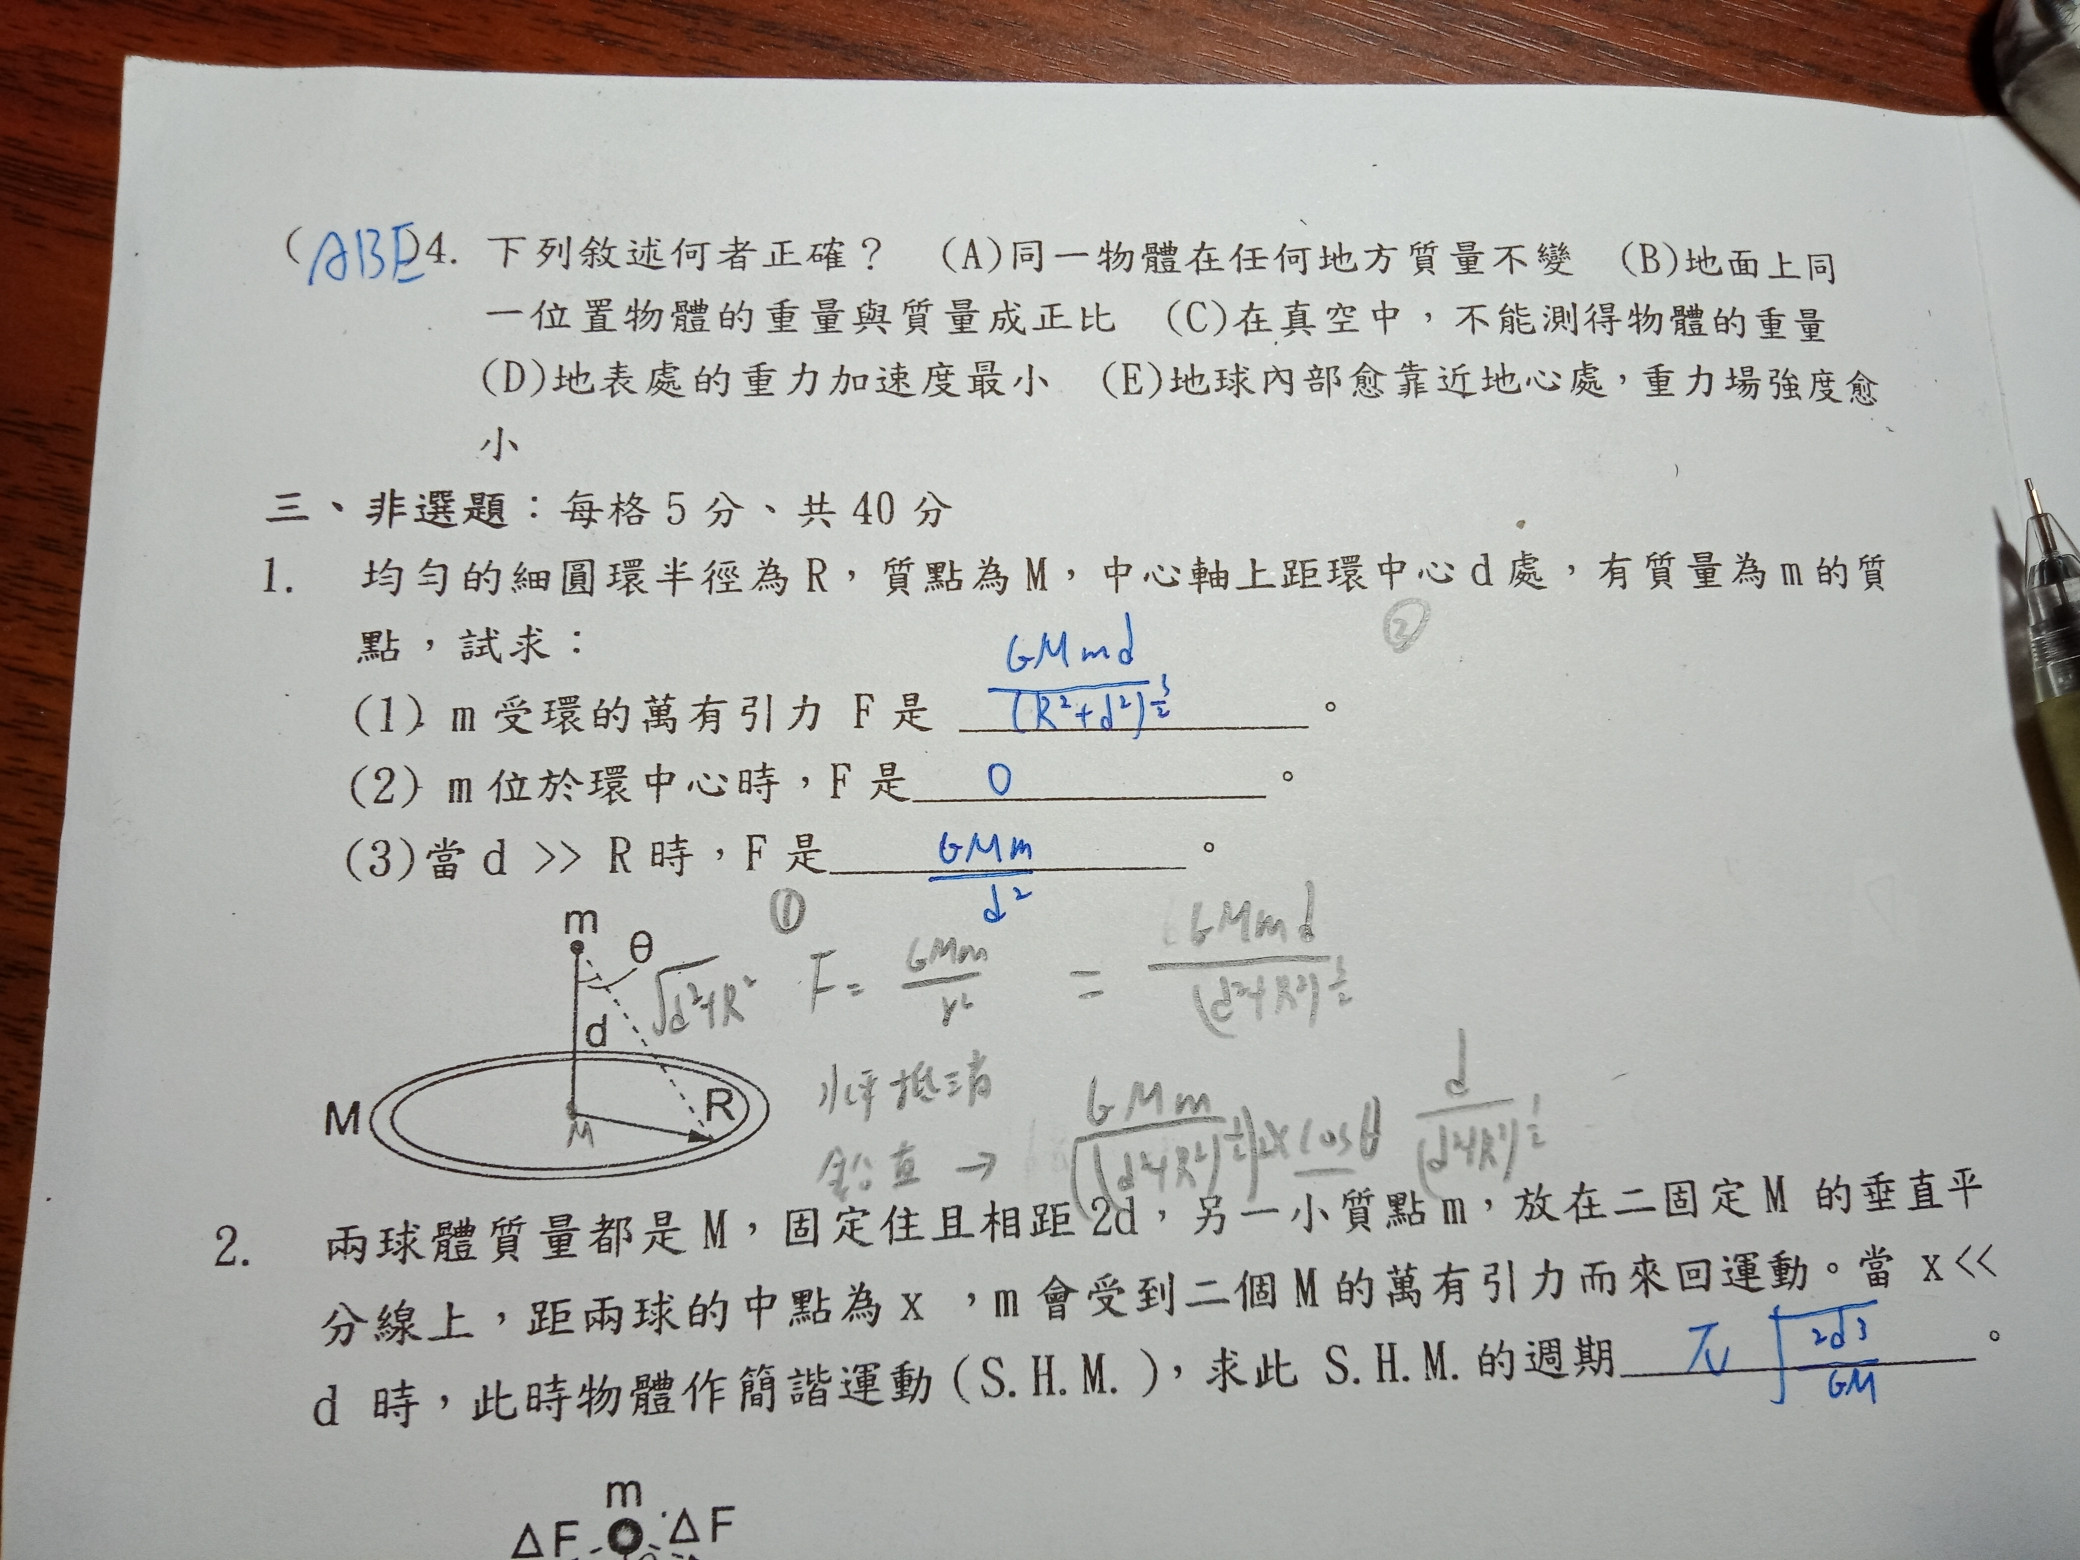 (ABE)4. 下列敘述何者正確？ (A)同一物體在任何地方質量不變 (B)地面上同
一位置物體的重量與質量成正比 (C)在真空中，不能測得物體的重量
(D)地表處的重力加速度最小 (E)地球內部愈靠近地心處，重力場強度愈
小
三、非選題：每格5分、共40分
1. 均勻的細圓環半徑為R，質點為M，中心軸上距環中心d處，有質量為m的質
點，試求：
②
(1) m受環的萬有引力 F是 GMmd/(R²+d²)^(3/2)。
(2) m位於環中心時，F是 0。
(3)當 d >> R時，F是 GMm/d²。
m
θ
√d²+R²
d
M
M
R
① F = GMm/r² = GMmd/(d²+R²)^(3/2)
水平抵消
鉛直 → GMm/((d²+R²)^(1/2))² × cosθ d/(d²+R²)^(1/2)
2. 兩球體質量都是M，固定住且相距2d，另一小質點m，放在二固定M 的垂直平
分線上，距兩球的中點為x ，m會受到二個M的萬有引力而來回運動。當 x<<
d 時，此時物體作簡諧運動(S.H.M.)，求此 S.H.M.的週期 π√(2d³/GM)。
m
ΔF ΔF